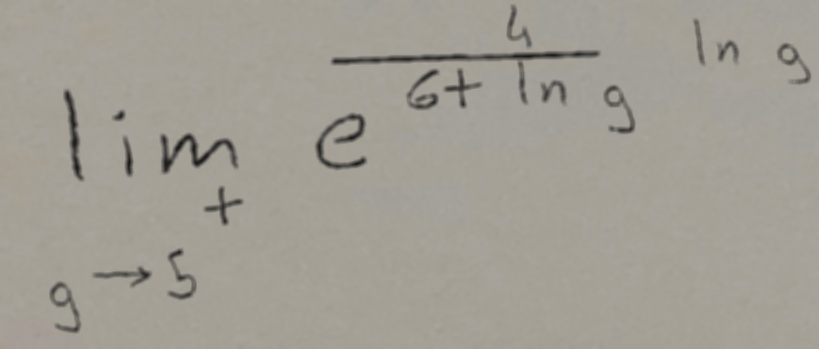 lim g → 5⁺ e^{\frac{4}{6 + ln g} ln g}